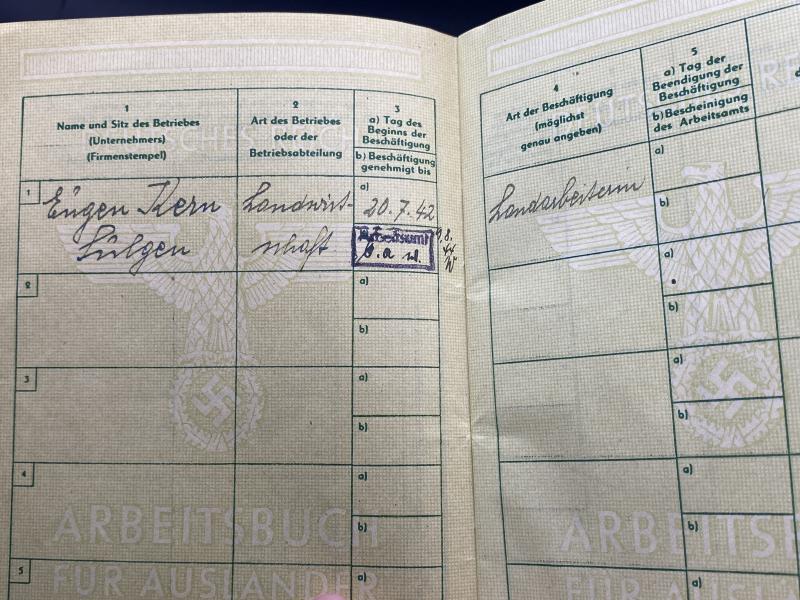 1
Name und Sitz des Betriebes
(Unternehmers)
(Firmenstempel)
2
Art des Betriebes
oder der
Betriebsabteilung
3
a) Tag des
Beginns der
Beschäftigung
b) Beschäftigung
genehmigt bis
1
Eugen Kern
Sülgen
Landwirt-
schaft
a)
20.7.42
Arbeitsamt
b. a. w.
2
a)
b)
3
a)
b)
4
a)
b)
5
a)
ARBEITSBUCH
FÜR AUSLÄNDER
4
Art der Beschäftigung
(möglichst
genau angeben)
5
a) Tag der
Beendigung der
Beschäftigung
b) Bescheinigung
des Arbeitsamts
Landarbeiterin
a)
b)
a)
b)
a)
b)
a)
b)
a)